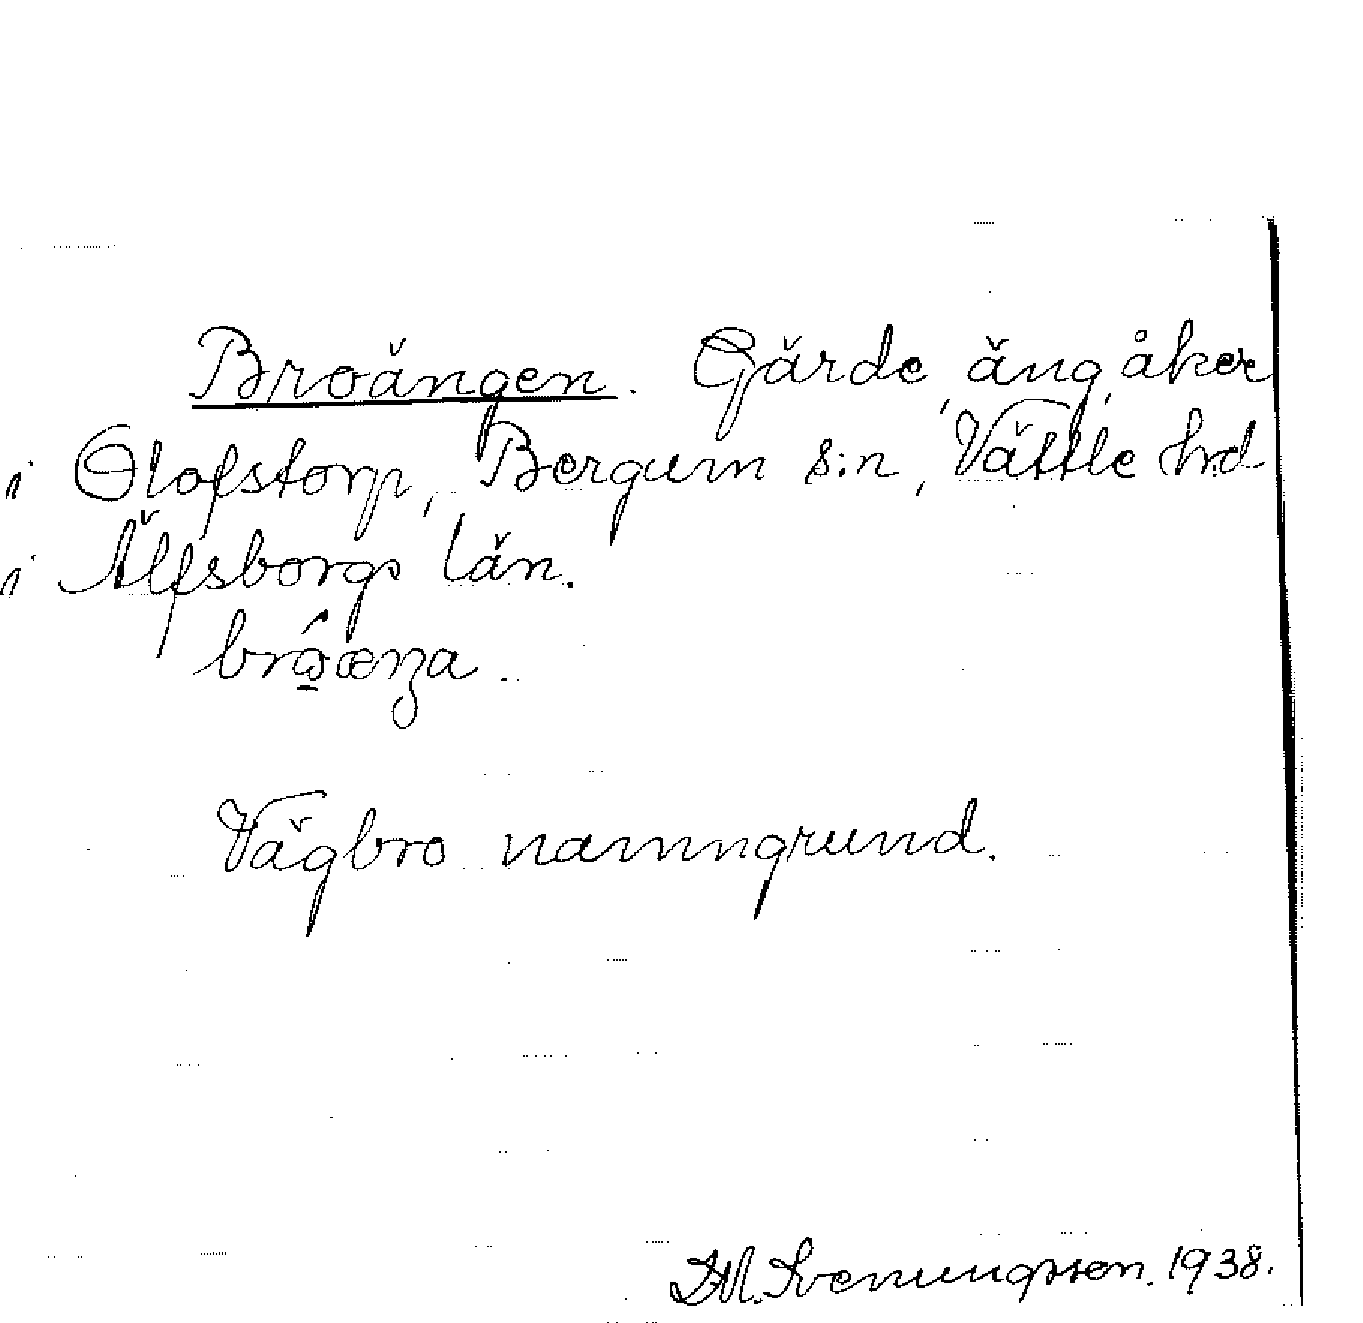 Broängen. Gärde, äng, åker
i Olofstorp, Bergum s:n, Vättle hd
i Älfsborgs län.
Vägbro namngrund.
D.M. Svenungsson. 1938.